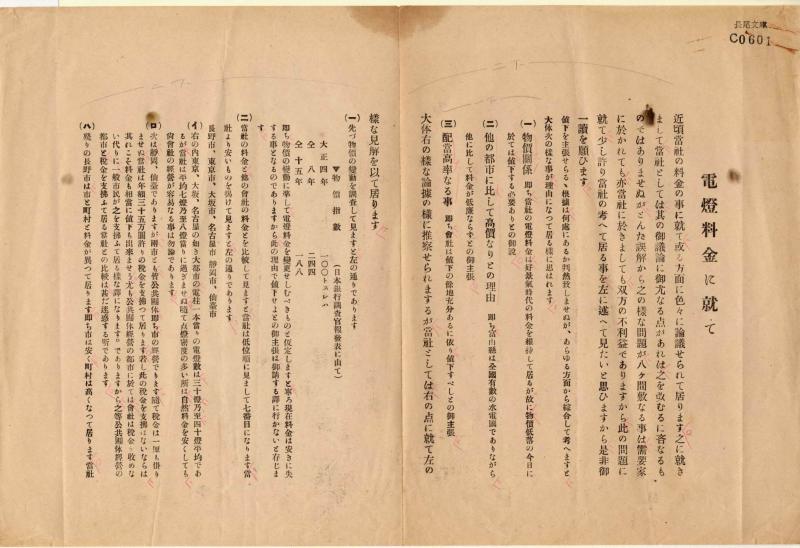 長尾文庫
C0601
電燈料金に就て
近頃當社の料金の事に就て或る方面に色々に論議せられて居ります之に就き
まして當社としては其の御議論に御尤なる点があれば之を改むるに吝なるも
のではありませぬがとんだ誤解から之の様な問題が八ヶ間敷なる事は需要家
に於かれても亦當社に於きましても双方の不利益でありますから此の問題に
就て少し許り當社の考へて居る事を左に述べて見たいと思ひますから是非御
一讀を願ひます
値下を主張せらるゝ根據は何處にあるか判然致しませぬが、あらゆる方面から綜合して考へますと
大体次の様な事が理由になつて居る様に思はれます
(一) 物價關係 即ち當社の電燈料金は好景氣時代の料金を維持して居るが故に物價低落の今日に
於ては値下する必要ありとの御説
(二) 他の都市に比して高價なりとの理由 即ち富山縣は全國有數の水電國でありながら
他に比して料金が低廉ならずとの御説
(三) 配當高率なる事 即ち會社は値下の餘地充分あるに依り値下すべしとの御主張
大体右の様な論據の様に推察せられまするが當社としては右の点に就て左の
様な見解を以て居ります
(一) 先づ物價の變動を調査して見ますと左の通りであります
▼物價指數 (日本銀行調査官報發表に由て)
大正四年 一〇〇トスレバ
仝 八年 二四四
仝 十五年 一八八
即ち物價の變動に準じて電燈料金を變更せしむべきものと假定しますと寧ろ現在料金は安きに失
する事となるのでありますから此の理由で値下せよとの御主張は御請する譯に行かないと存じま
す
(二) 當社の料金と他の會社の料金とを比較して見ますと當社は低位順に見まして七番目になります當
社より安いものを擧げて見ますと左の通りであります
長野市、東京市、大坂市、名古屋市 靜岡市、仙臺市
(イ) 右の内東京、大坂、名古屋の如き大都市の電柱一本當りの電燈數は三十燈乃至四十燈平均であ
るが當社は平均七燈乃至八燈當りに過ぎませぬ隨て点燈密度の多い所は自然料金を安くしても
尚會社の經營が容易なる事は勿論であります
(ロ) 次は靜岡、仙臺でありますが兩市とも皆公共團体即ち市の經營であります隨て税金は一厘も掛り
ませぬ當社は年額三十五万圓許りの税金を支拂つて居ります若し此の税金を支拂はないならば
其れこそ料金も相當に値下も出來ませう尤も公共團体經營の都市に於ては會社は税金を收めな
い代りに一般市民が之を支拂ふて居る樣な譯になります。でありますから之等公共團体經營の
都市と税金を支拂ふて居る當社との比較は甚だ迷惑する所であります
(ハ) 殘りの長野市は市と町村と料金が異つて居ります即ち市は安く町村は高くなつて居ります當社